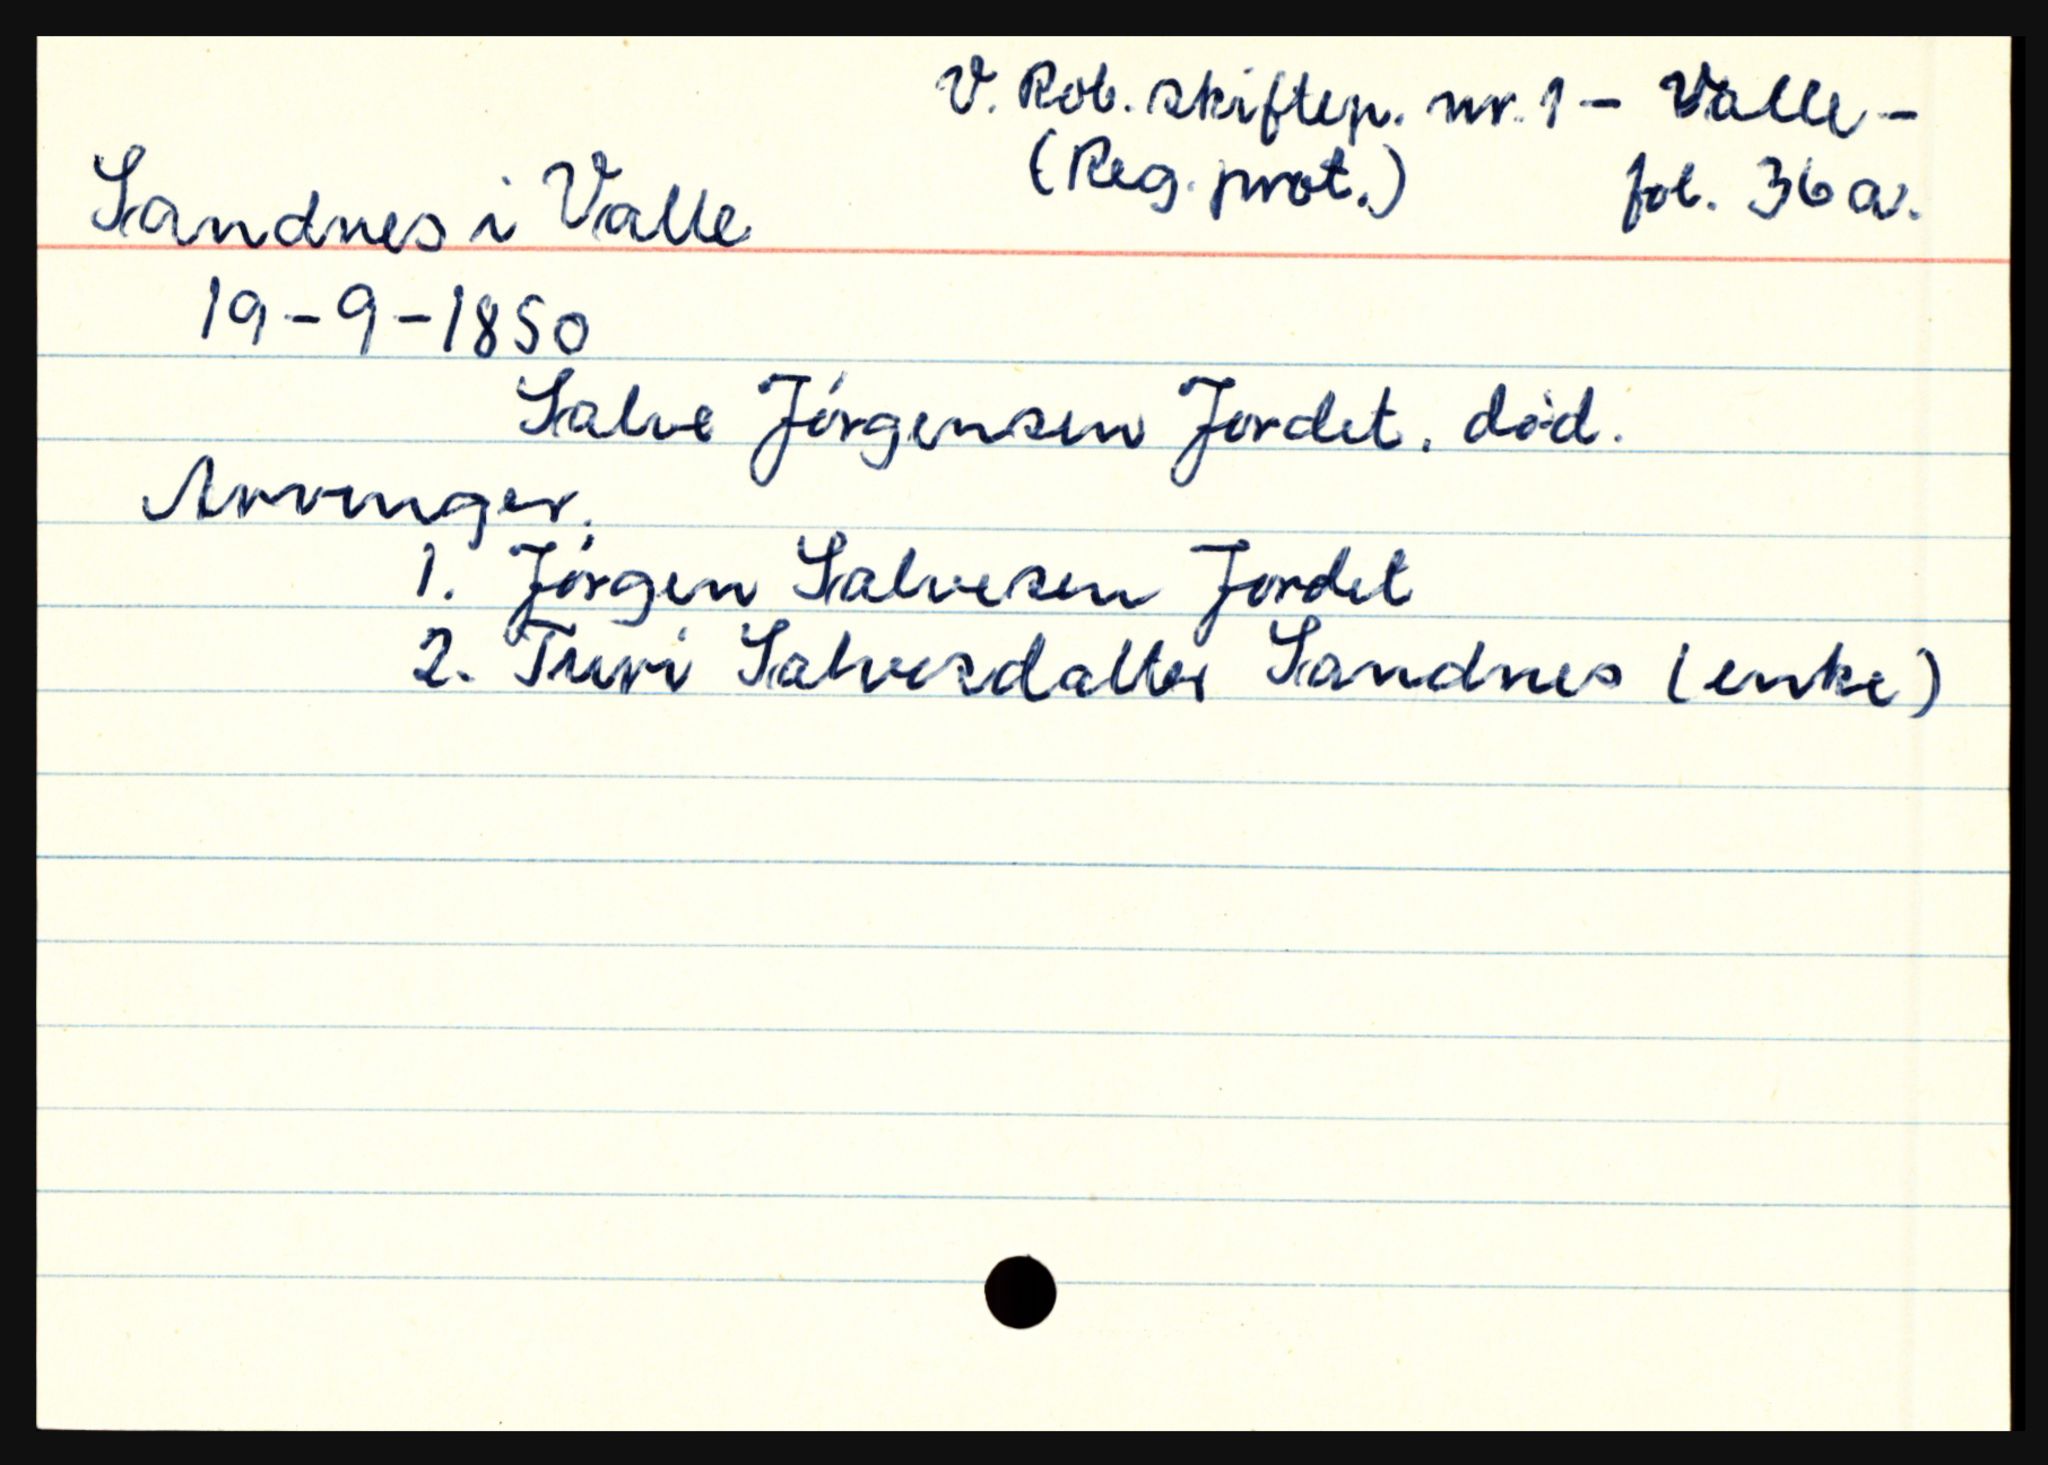 V. Rob. skiftep. nr. 1 – Valle –
(Reg. prot.) fol. 36 a.
Sandnes i Valle
19-9-1850
Salve Jörgensen Jordet. död.
Arvinger.
1. Jörgen Salvesen Jordet
2. Turi Salvesdatter Sandnes (enke)